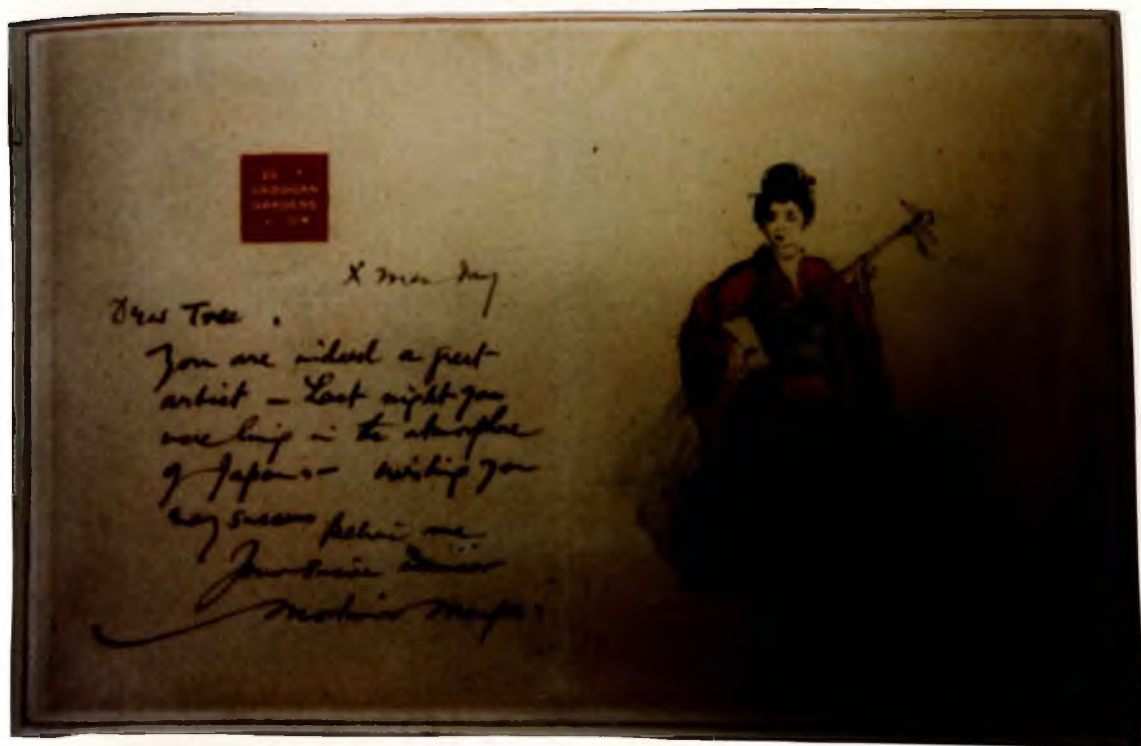 CADOGAN
GARDENS
S.W
X mas Day
Dear Tree.
You are indeed a great
artist – Last night you
were living in the atmosphere
of Japan – wishing you
every success believe me
Your sincere admirer
Mortimer Menpes